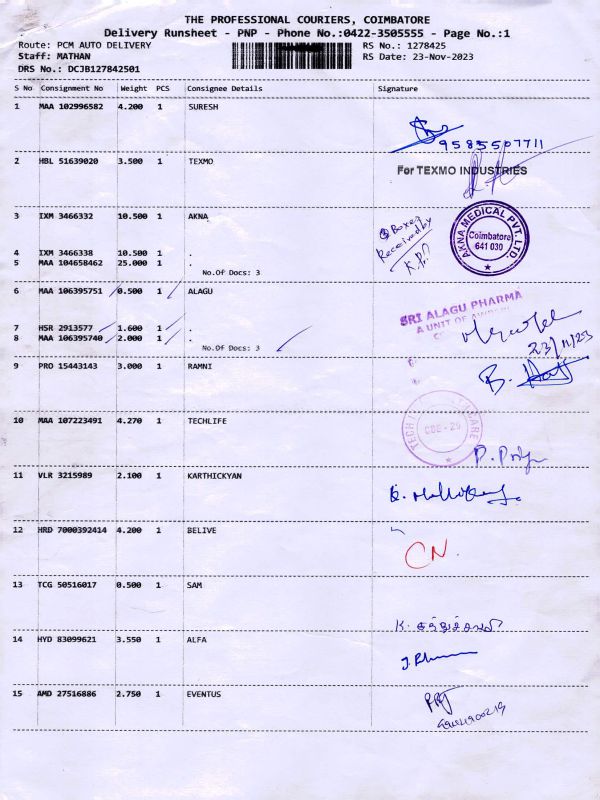 THE PROFESSIONAL COURIERS, COIMBATORE
Delivery Runsheet - PNP - Phone No.:0422-3505555 - Page No.:1
Route: PCM AUTO DELIVERY RS No.: 1278425
Staff: MATHAN RS Date: 23-Nov-2023
DRS No.: DCJB127842501
S No Consignment No Weight PCS Consignee Details Signature
1 MAA 102996582 4.200 1 SURESH
9585507711
2 HBL 51639020 3.500 1 TEXMO
For TEXMO INDUSTRIES
3 IXM 3466332 10.500 1 AKNA
Boxes
Received by
AKNA MEDICAL PVT. LTD.
Coimbatore
641 030
4 IXM 3466338 10.500 1 .
5 MAA 104658462 25.000 1 .
No.Of Docs: 3
6 MAA 106395751 0.500 1 ALAGU
SRI ALAGU PHARMA
A UNIT OF
7 HSR 2913577 1.600 1 .
8 MAA 106395740 2.000 1 .
No.Of Docs: 3
23/11/23
9 PRO 15443143 3.000 1 RAMNI
10 MAA 107223491 4.270 1 TECHLIFE
CBE - 29
11 VLR 3215989 2.100 1 KARTHICKYAN
12 HRD 7000392414 4.200 1 BELIVE
CN.
13 TCG 50516017 0.500 1 SAM
14 HYD 83099621 3.550 1 ALFA
15 AMD 27516886 2.750 1 EVENTUS